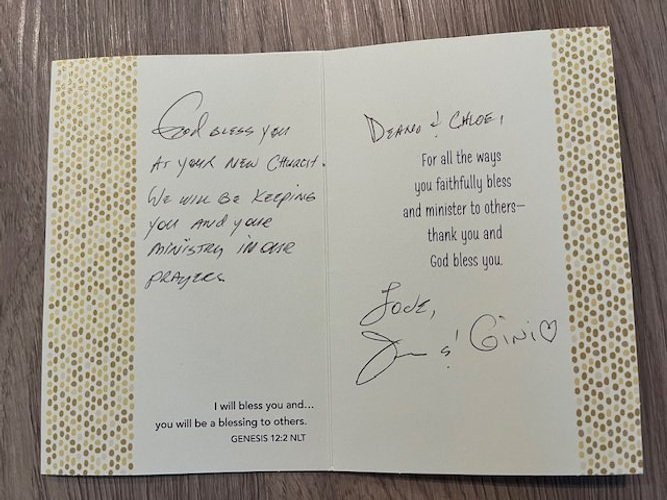 God bless you
at your new church.
We will be keeping
you and your
ministry in our
prayers
I will bless you and...
you will be a blessing to others.
GENESIS 12:2 NLT
Deano & Chloe,
For all the ways
you faithfully bless
and minister to others—
thank you and
God bless you.
Love,
& Gini♡